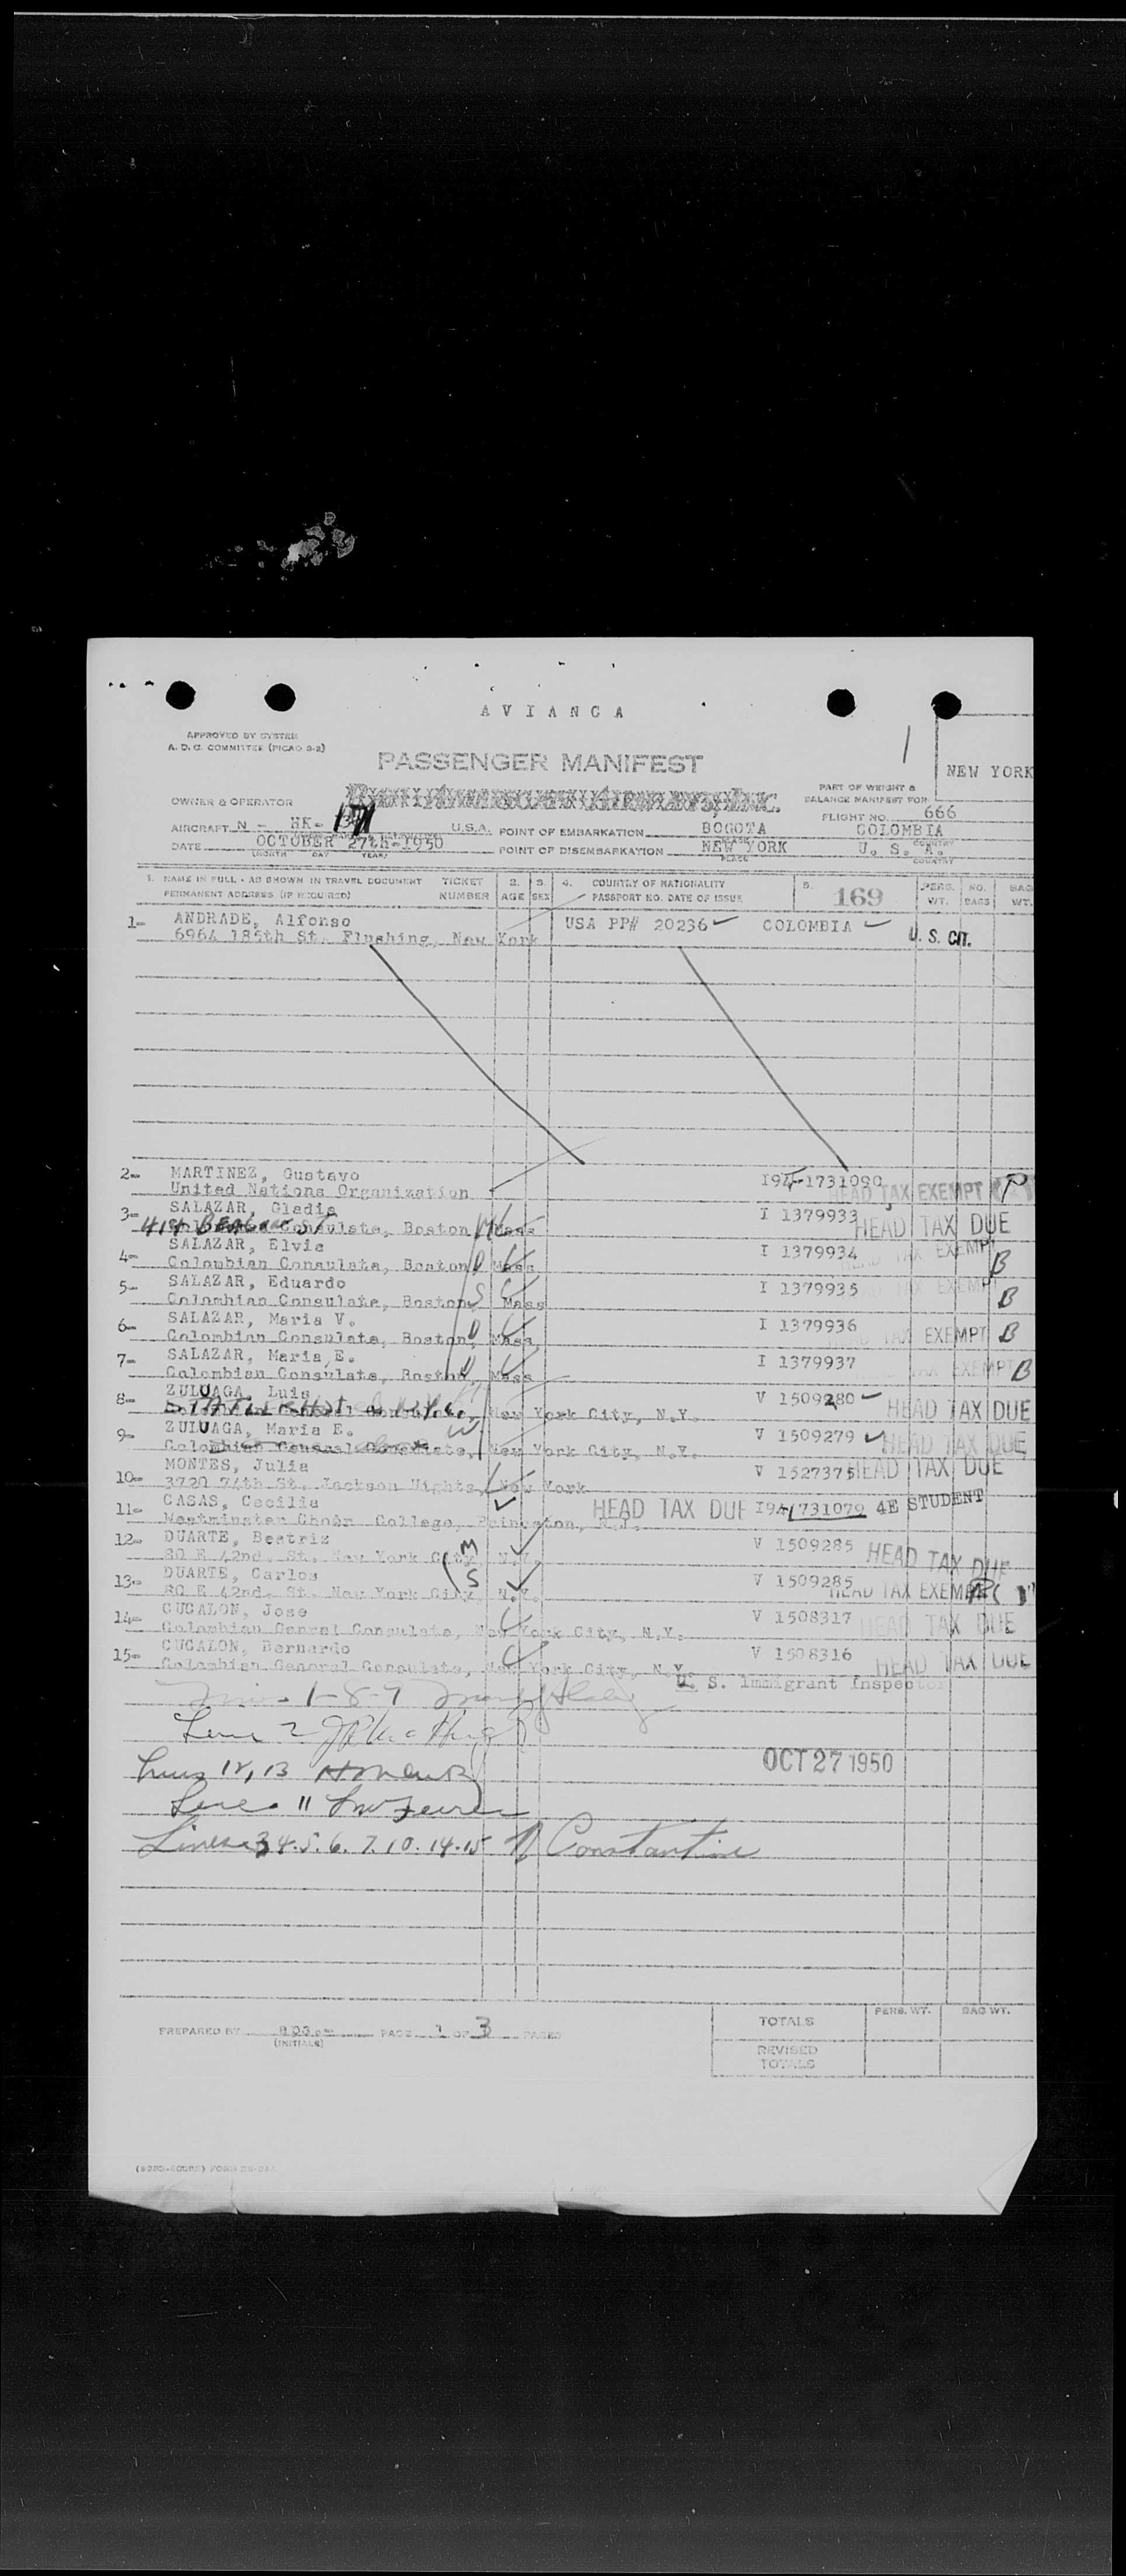 AVIANCA
APPROVED BY SYSTEM
A. D. C. COMMITTEE (PICAO 2-2)
PASSENGER MANIFEST
NEW YORK
PART OF WEIGHT &
BALANCE MANIFEST FOR
OWNER & OPERATOR
FLIGHT NO. 666
AIRCRAFT N - HK- 171 U.S.A. POINT OF EMBARKATION BOGOTA COLOMBIA
DATE OCTOBER 27th-1950 POINT OF DISEMBARKATION NEW YORK U. S. A.
(MONTH DAY YEAR) PLACE COUNTRY
1. NAME IN FULL - AS SHOWN IN TRAVEL DOCUMENT TICKET 2. 3. 4. COUNTRY OF NATIONALITY 5. 169 PERS. NO. BAG
PERMANENT ADDRESS (IF REQUIRED) NUMBER AGE SEX PASSPORT NO. DATE OF ISSUE WT. BAGS WT.
1- ANDRADE, Alfonso USA PP# 20236 COLOMBIA U. S. CIT.
696A 185th St. Flushing, New York
2- MARTINEZ, Gustavo I94-1731090 HEAD TAX EXEMPT P
United Nations Organization
3- SALAZAR, Gladis I 1379933 HEAD TAX DUE
414 Beacon St Consulate, Boston Mass
4- SALAZAR, Elvie I 1379934 HEAD TAX EXEMPT B
Colombian Consulate, Boston, D Mass
5- SALAZAR, Eduardo I 1379935 HEAD TAX EXEMPT B
Colombian Consulate, Boston, S Mass
6- SALAZAR, Maria V. I 1379936 HEAD TAX EXEMPT B
Colombian Consulate, Boston, D Mass
7- SALAZAR, Maria E. I 1379937 HEAD TAX EXEMPT B
Colombian Consulate, Boston, D Mass
8- ZULUAGA, Luis V 1509280 HEAD TAX DUE
New York City, N.Y.
9- ZULUAGA, Maria E. V 1509279 HEAD TAX DUE
Colombian General Consulate, New York City, N.Y.
10- MONTES, Julia V 1527375 HEAD TAX DUE
3720 74th St. Jackson Hights, New York
11- CASAS, Cecilia HEAD TAX DUE I94-1731079 4E STUDENT
Westminster Choir College, Princeton, N.J.
12- DUARTE, Beatriz M V 1509285 HEAD TAX DUE
80 E 42nd. St. New York City N.Y.
13- DUARTE, Carlos S V 1509285 HEAD TAX EXEMPT
80 E 42nd. St. New York City, N.Y.
14- CUCALON, Jose V 1508317 HEAD TAX DUE
Colombian Genral Consulate, New York City, N.Y.
15- CUCALON, Bernardo V 1508316 HEAD TAX DUE
Colombian General Consulate, New York City, N.Y.
U. S. Immigrant Inspector
1-8-9
Line 2
OCT 27 1950
Lines 12, 13
Line 11
Lines 3 4. 5. 6. 7. 10. 14. 15 Constantine
PREPARED BY PAGE 1 OF 3 PAGES
(INITIALS)
TOTALS PERS. WT. BAG WT.
REVISED
TOTALS